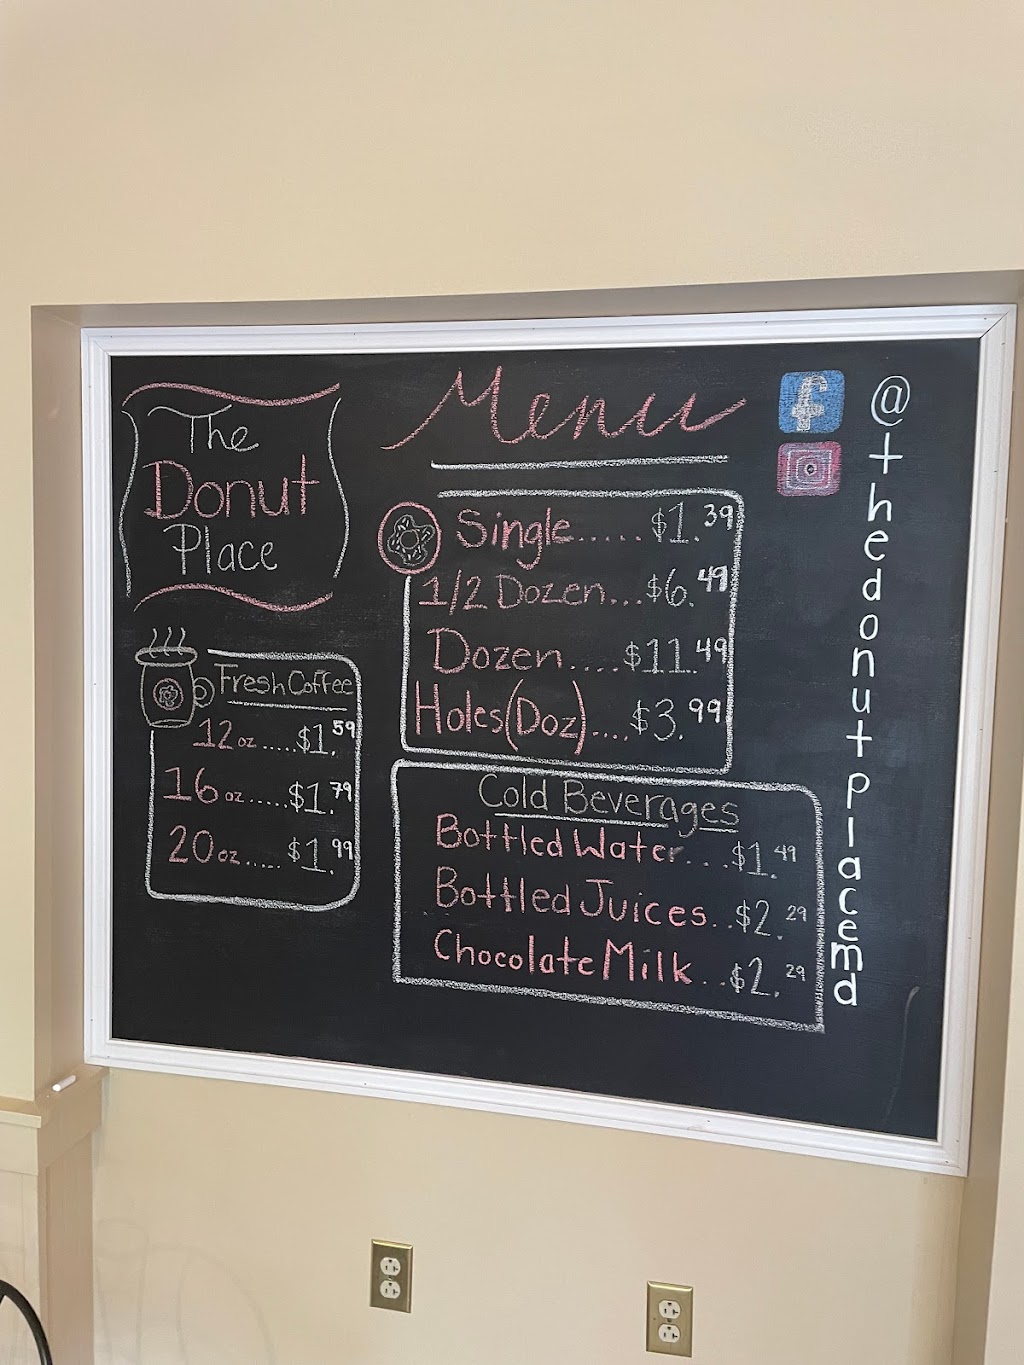 The
Donut
Place
Menu
Single...... $1.39
1/2 Dozen...$6.49
Dozen....$11.49
Holes(Doz)....$3.99
Fresh Coffee
12 oz.....$1.59
16 oz.....$1.79
20 oz.....$1.99
Cold Beverages
Bottled Water...$1.49
Bottled Juices..$2.29
Chocolate Milk...$2.29
f
@thedonutplacemd